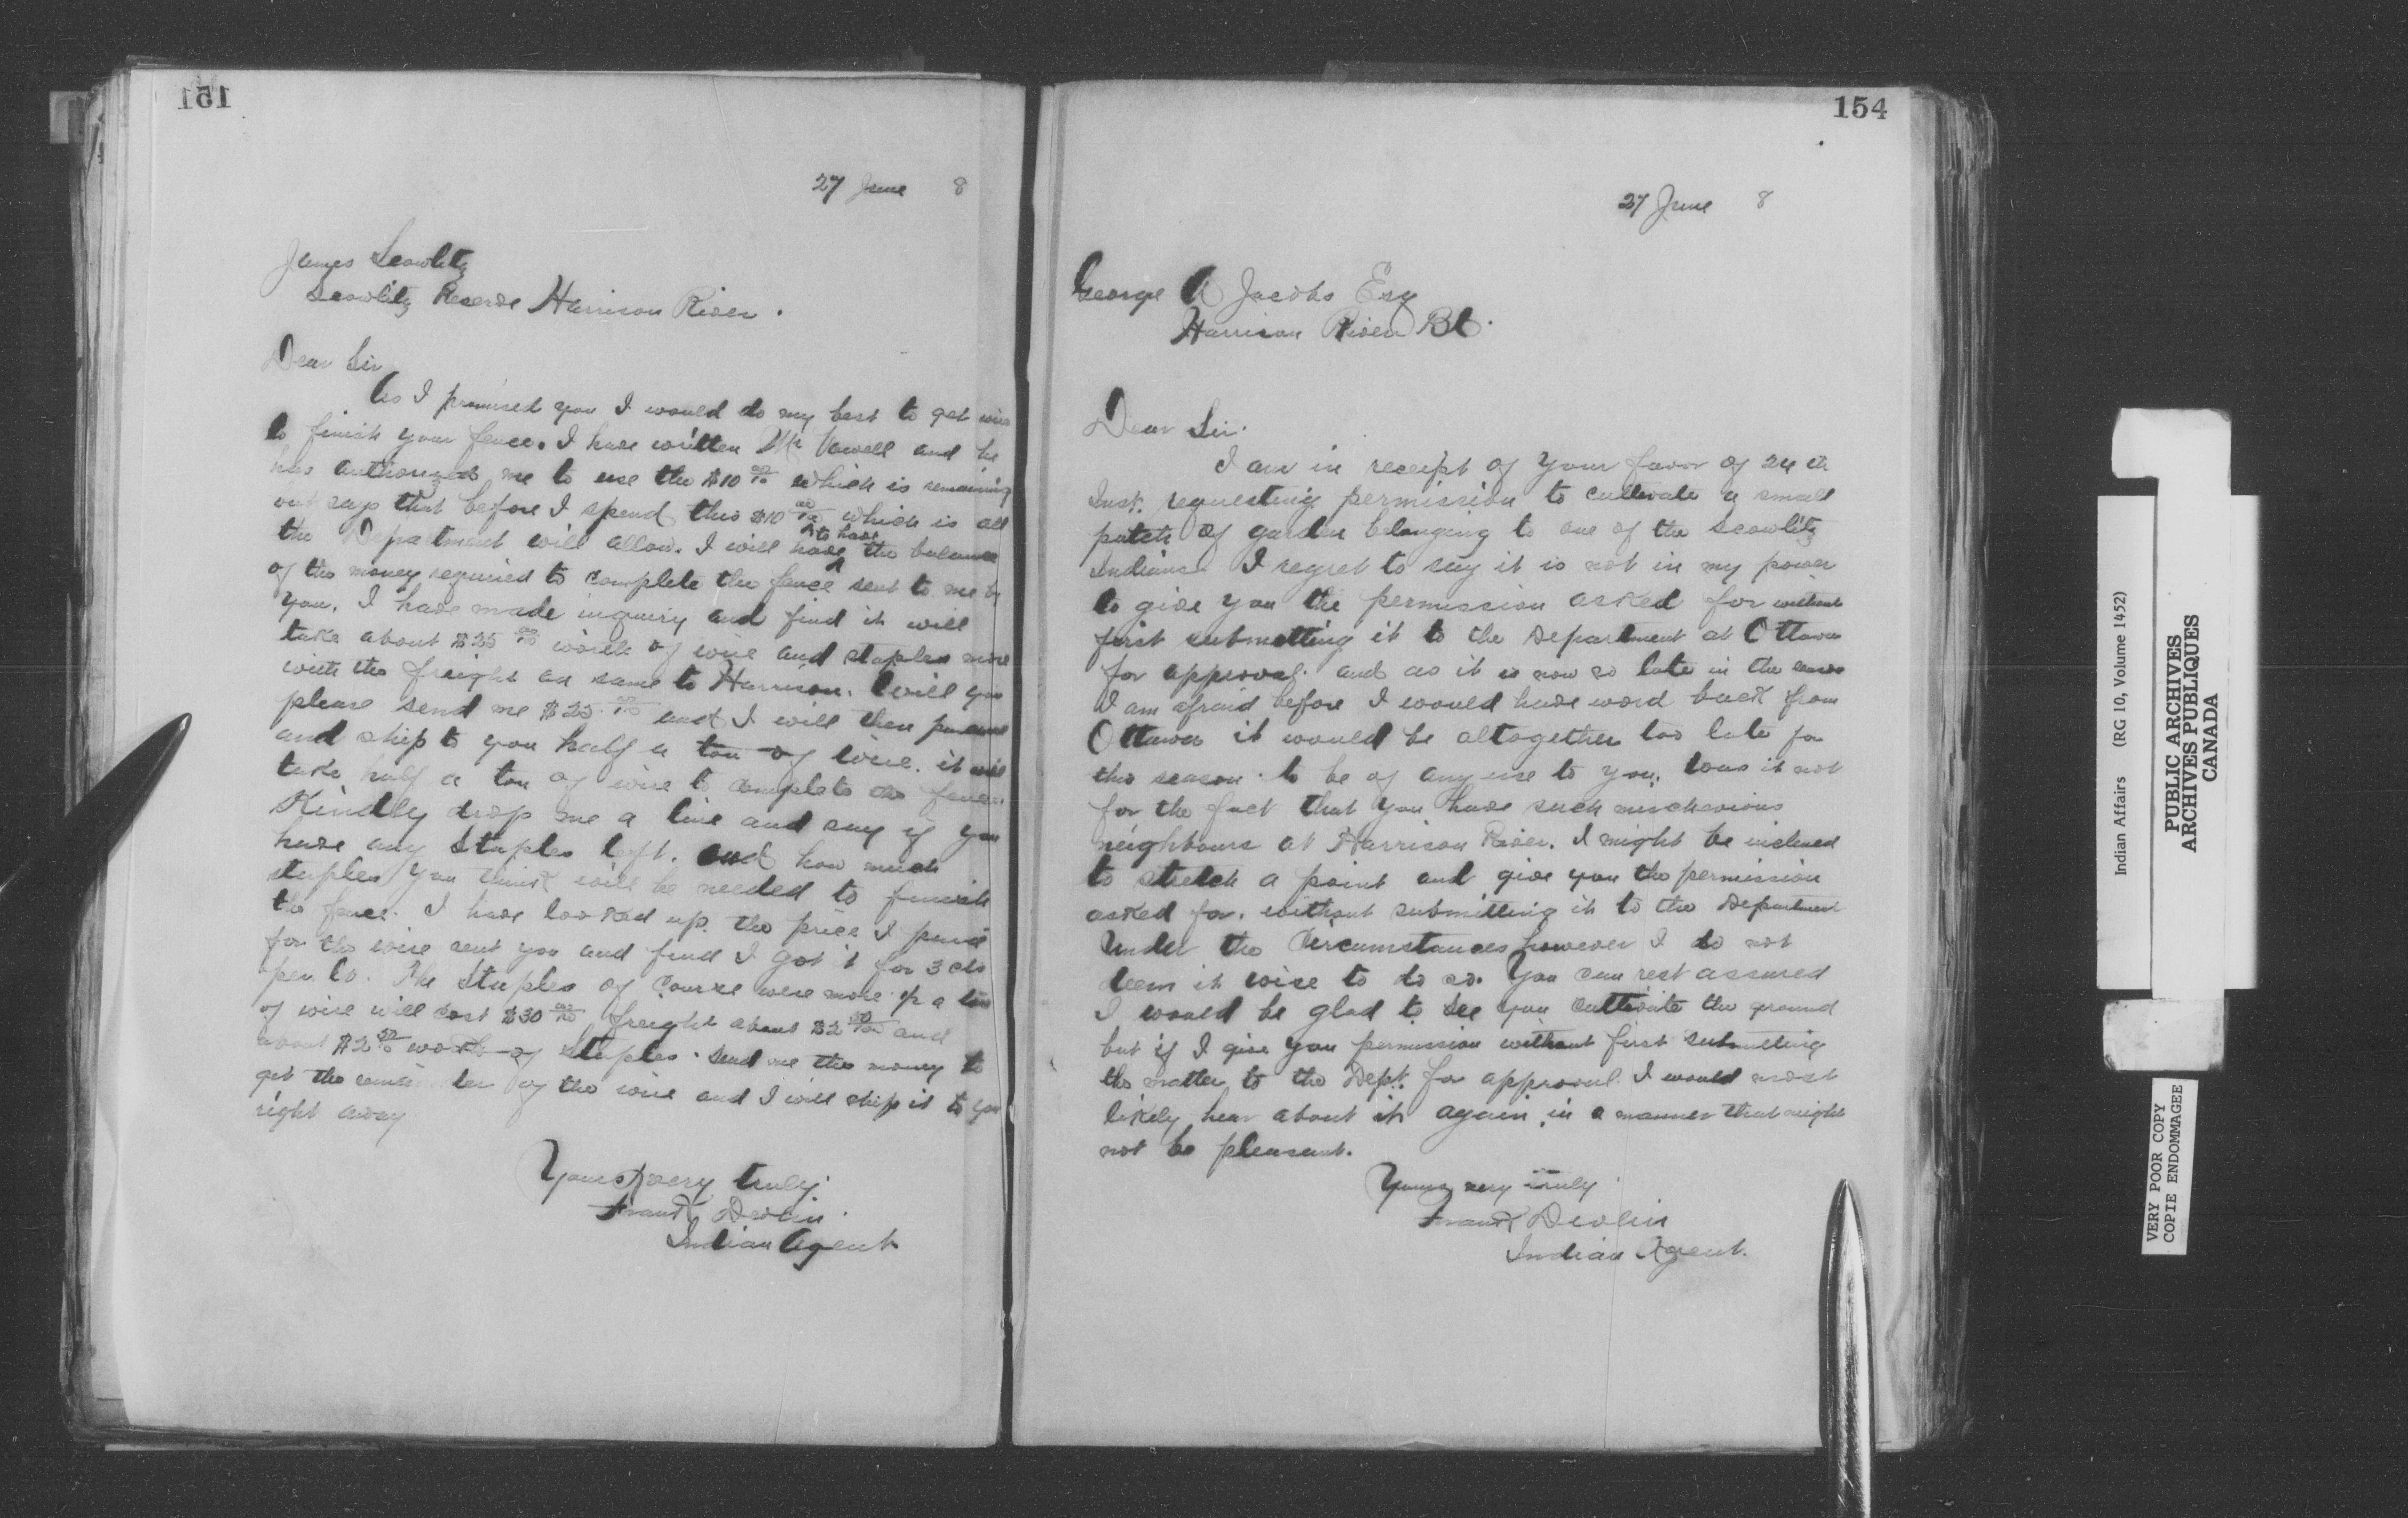 151
27 June 8
James Scowlitz
Scowlitz Reserve Harrison River.
Dear Sir
As I promised you I would do my best to get wire
to finish your fence. I have written Mr Vowell and he
has authorized me to use the $10 00/100 which is remaining
but says that before I spend this $10 00/100 which is all
the Department will allow. I will have to have the balance
of the money required to complete the fence sent to me by
you. I have made inquiry and find it will
take about $25 00/100 worth of wire and staples more
with the freight on same to Harrison. Will you
please send me $25 00/100 and I will then purchase
and ship to you half a ton of wire. it will
take half a ton of wire to complete the fence
Kindly drop me a line and say if you
have any staples left. and how much
staples you think will be needed to finish
the fence. I have looked up the price I paid
for the wire sent you and find I got it for 3 cts
per lb. The Staples of course were more ½ a ton
of wire will cost $30 00/100 freight about $2 50/100 and
about $2 50/100 worth of Staples. Send me the money to
get the remainder of the wire and I will ship it to you
right away
Yours very truly
Frank Devlin
Indian Agent
154
27 June 8
George A Jacobs Esq
Harrison River BC.
Dear Sir.
I am in receipt of your favor of 24th
Inst. requesting permission to cultivate a small
patch of garden belonging to one of the Scowlitz
Indians I regret to say it is not in my power
to give you the permission asked for without
first submitting it to the Department at Ottawa
for approval. and as it is now so late in the season
I am afraid before I would have word back from
Ottawa it would be altogether too late for
this season to be of any use to you. Was it not
for the fact that you have such mischevious
neighbours at Harrison River. I might be inclined
to stretch a point and give you the permission
asked for. without submitting it to the Department
Under the Circumstances however I do not
deem it wise to do so. You can rest assured
I would be glad to see you cultivate the ground
but if I give you permission without first submitting
the matter to the Dept. for approval I would most
likely hear about it again, in a manner that might
not be pleasant.
Yours very truly
Frank Devlin
Indian Agent.
Indian Affairs (RG 10, Volume 1452)
PUBLIC ARCHIVES
ARCHIVES PUBLIQUES
CANADA
VERY POOR COPY
COPIE ENDOMMAGEE